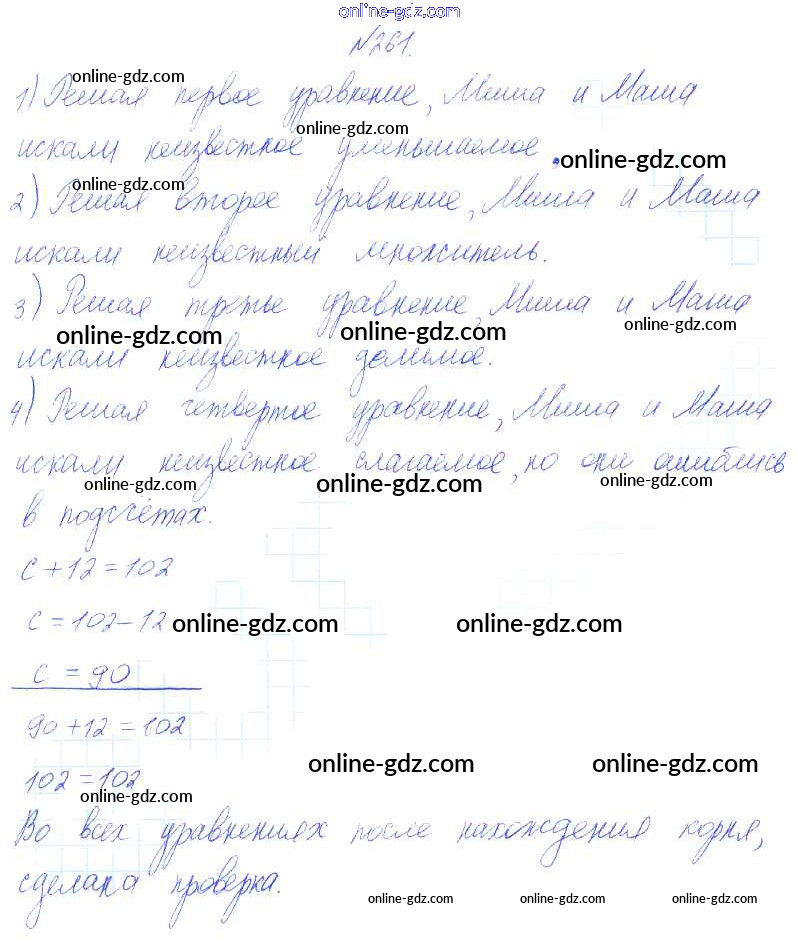 online-gdz.com
№261.
online-gdz.com
1) Решая первое уравнение, Миша и Маша
online-gdz.com
искали неизвестное уменьшаемое.
online-gdz.com
online-gdz.com
2) Решая второе уравнение, Миша и Маша
искали неизвестный множитель.
3) Решая третье уравнение, Миша и Маша
online-gdz.com online-gdz.com online-gdz.com
искали неизвестное делимое.
4) Решая четвертое уравнение, Миша и Маша
искали неизвестное слагаемое, но они ошиблись
online-gdz.com online-gdz.com online-gdz.com
в подсчётах.
c + 12 = 102
c = 102 - 12
online-gdz.com online-gdz.com
c = 90
90 + 12 = 102
online-gdz.com online-gdz.com
102 = 102
online-gdz.com
Во всех уравнениях после нахождения корня,
сделана проверка.
online-gdz.com online-gdz.com online-gdz.com